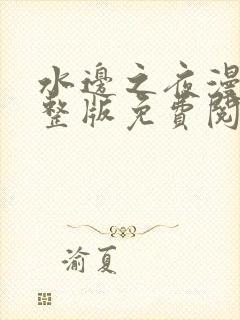 水邊之夜漫
整版免費閱
渝夏